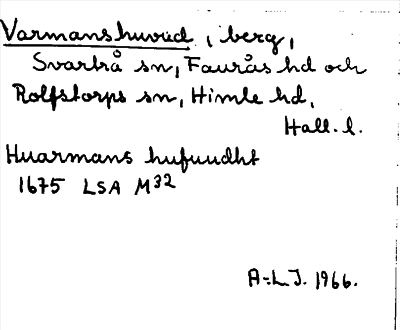 Varmanshuvud, berg,
Svartrå sn, Faurås hd och
Rolfstorps sn, Himle hd,
Hall. l.
Huarmans hufuudht
1675 LSA M32
A-L.J. 1966.